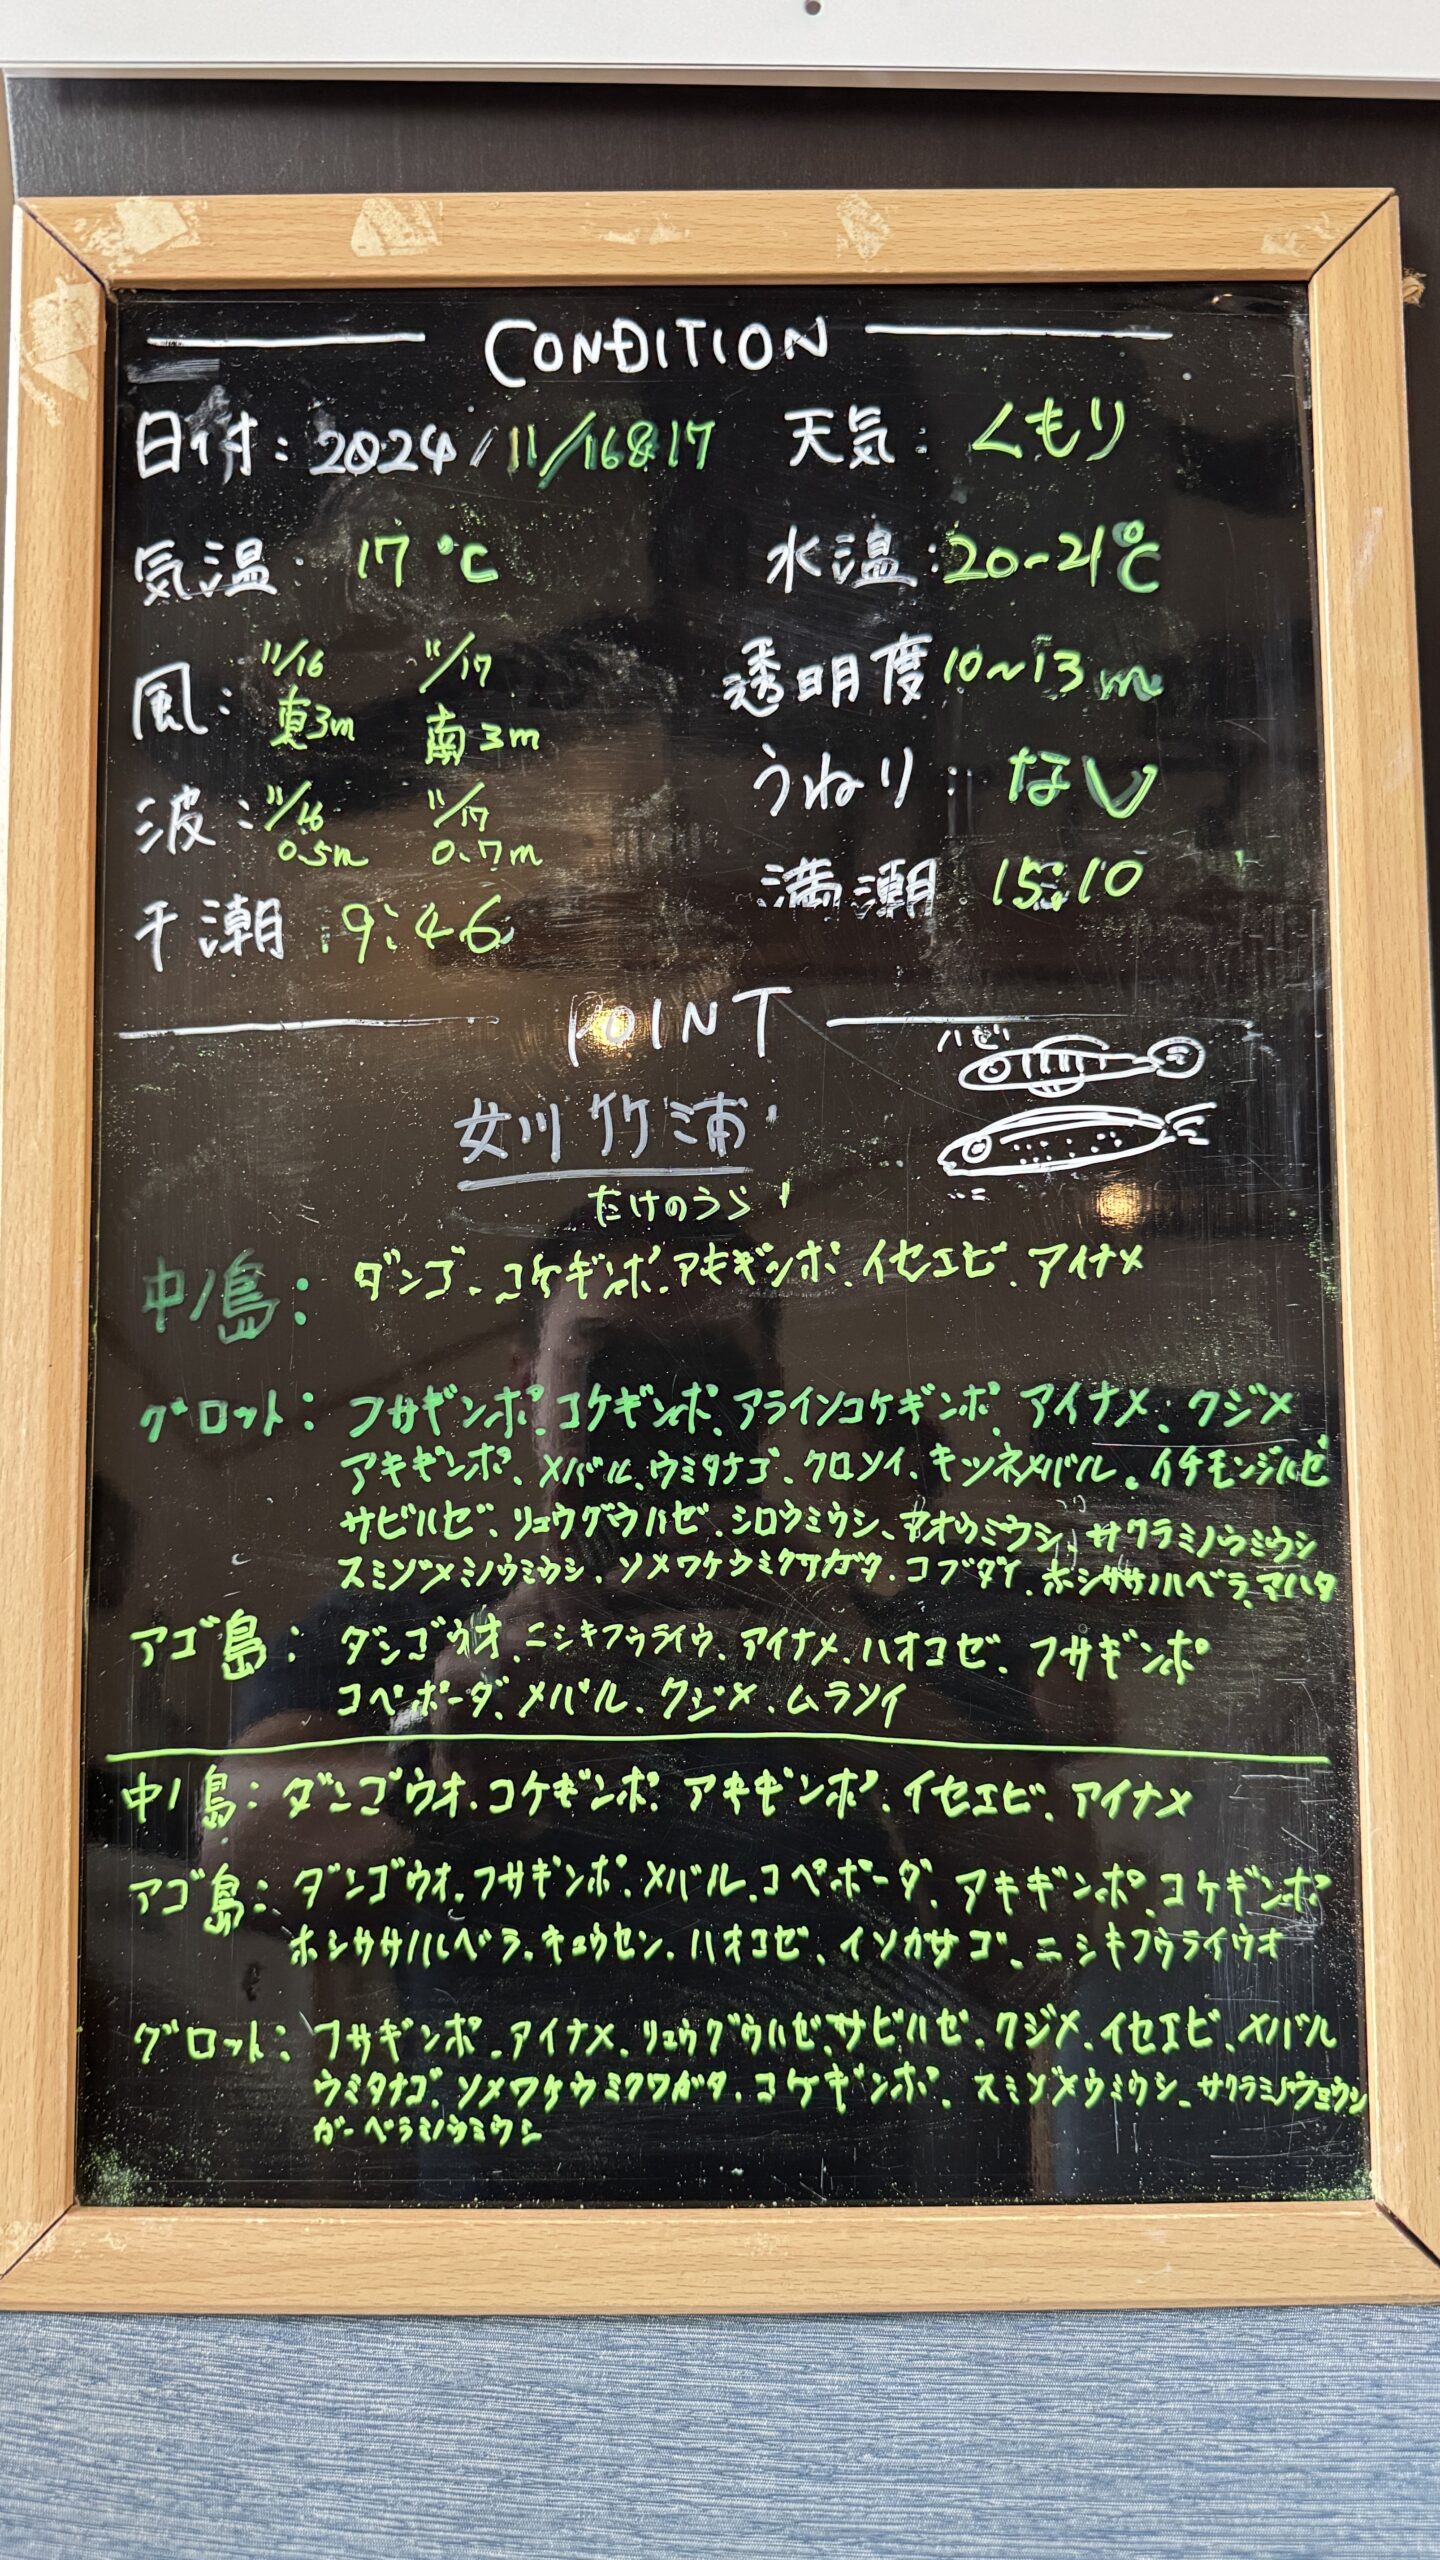 CONDITION
日付: 2024/11/16&17 天気: くもり
気温: 17℃ 水温: 20~21℃
風: 11/16 東3m 11/17 南3m 透明度 10~13m
波: 11/16 0.5m 11/17 0.7m うねり: なし
干潮: 9:46 満潮 15:10
POINT
ハゼ
女川 竹浦
たけのうら
中ノ島: ダンゴ、コケギンポ、アキギンポ、イセエビ、アイナメ
グロット: フサギンポ、コケギンポ、アライソコケギンポ、アイナメ、クジメ
アキギンポ、メバル、ウミタナゴ、クロソイ、キツネメバル、イチモンジハゼ
サビハゼ、リュウグウハゼ、シロウミウシ、アオウミウシ、サクラミノウミウシ
スミゾメミノウミウシ、ソメワケウミクワガタ、コブダイ、ホシササノハベラ、マハタ
アゴ島: ダンゴウオ、ニシキフウライウ、アイナメ、ハオコゼ、フサギンポ
コペポーダ、メバル、クジメ、ムラソイ
中ノ島: ダンゴウオ、コケギンポ、アキギンポ、イセエビ、アイナメ
アゴ島: ダンゴウオ、フサギンポ、メバル、コペポーダ、アキギンポ、コケギンポ
ホシササノハベラ、キュウセン、ハオコゼ、イソカサゴ、ニシキフウライウオ
グロット: フサギンポ、アイナメ、リュウグウハゼ、サビハゼ、クジメ、イセエビ、メバル
ウミタナゴ、ソメワケウミクワガタ、コケギンポ、スミゾメウミウシ、サクラミノウミウシ
ガーベラミノウミウシ